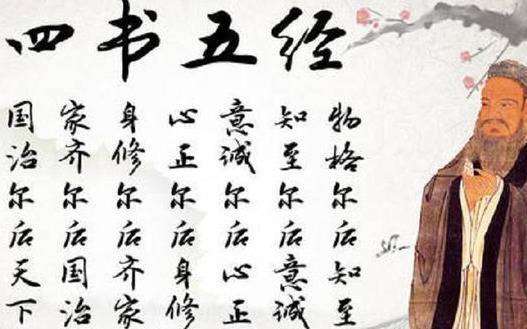 四书五经
物格尔后知至
知至尔后意诚
意诚尔后心正
心正尔后身修
身修尔后齐家
家齐尔后国治
国治尔后天下